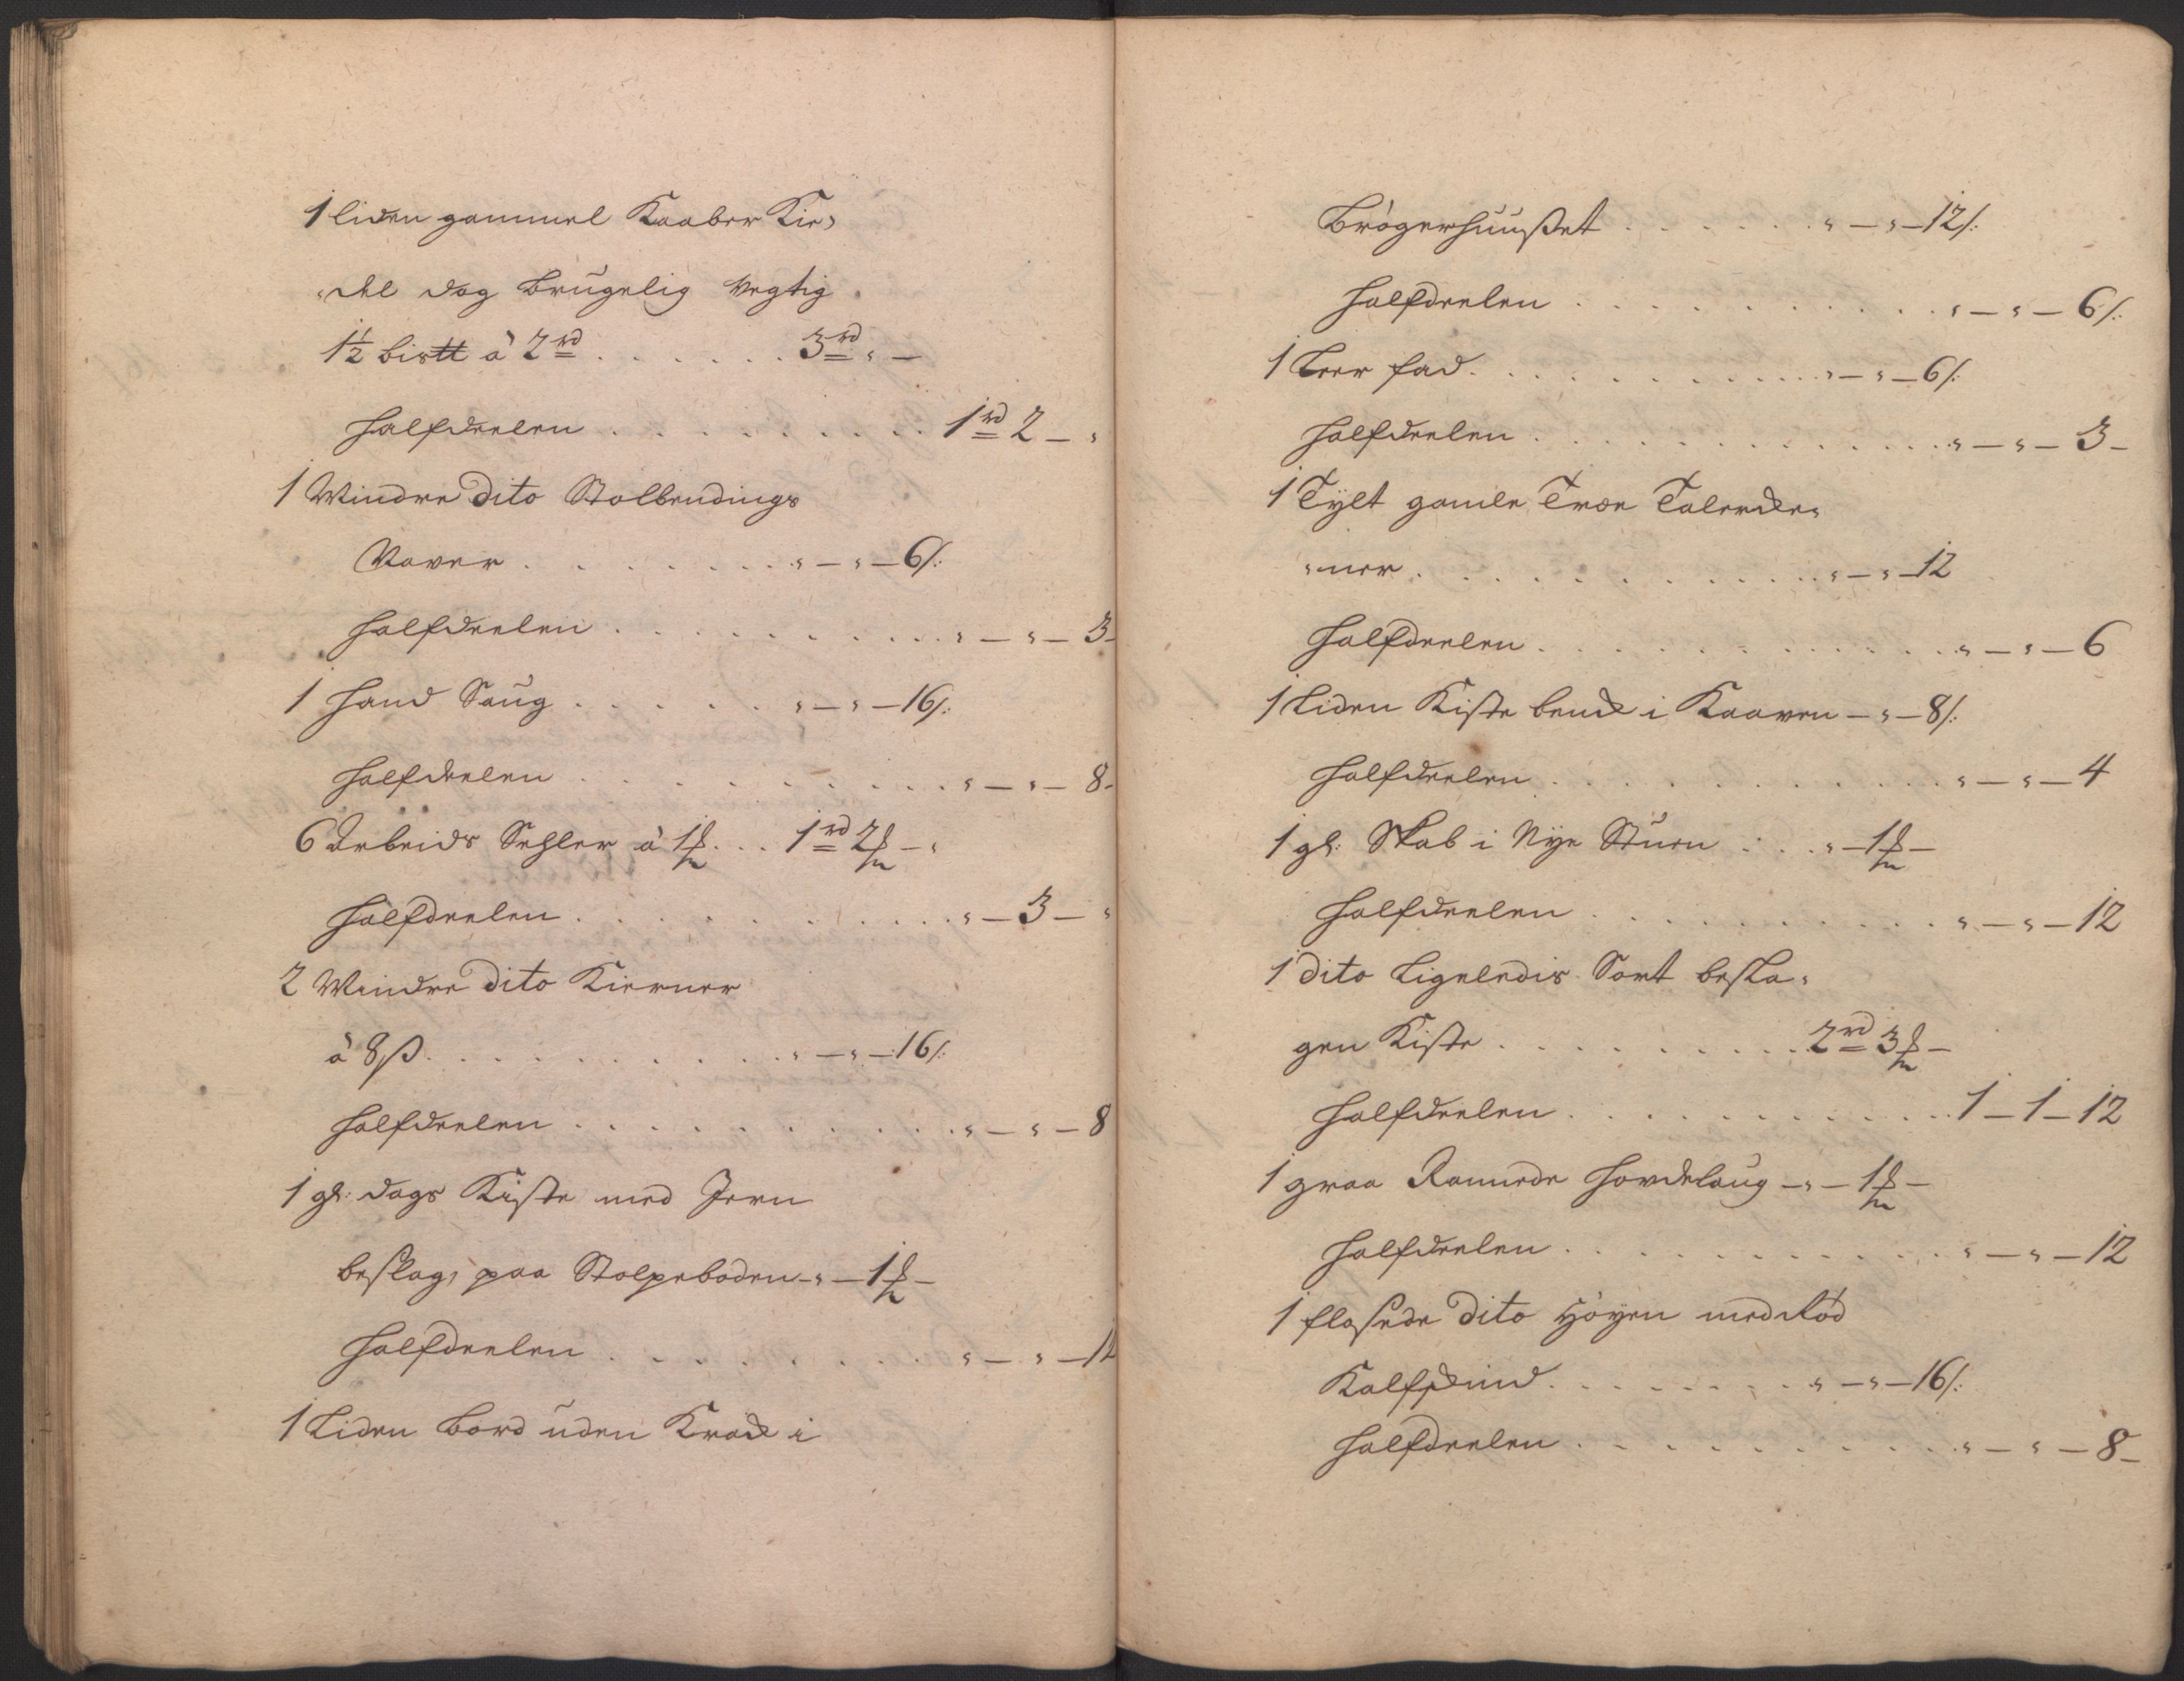 1 liden gammel Kaaber Kie,
"del dog Brugelig vegtig
1½ bistt à 2rd . . . . . . 3rd " —
Halfdeelen . . . . . . . . . 1rd 2 — "
1 Mindre Dito Stolbendings
Vaver . . . . . . . . " — " — 6/:
Halfdeelen . . . . . . . . . . . " — " — 3 —
1 Hand Saug . . . . . . " — " — 16/:
Halfdeelen . . . . . . . . . . . " — " — 8 —
6 Arbeids Sehler à 1 . . . 1rd 2 — "
Halfdeelen . . . . . . . . . . . . " — 3 — "
2 Mindre Dito Kierner
à 8ß . . . . . . . . . . . . " — " — 16/:
Halfdeelen . . . . . . . . . . . " — " — 8
1 gl: dags Kiste med Jern
beslag, paa Stolpeboden — " — 1 —
Halfdeelen . . . . . . . . . " — " — 12
1 Liden Bord uden Krak i
Brögerhuußet . . . . . . . " — " — 12/:
Halfdeelen . . . . . . . . . . . . " — " — 6/:
1 Leer fad . . . . . . . . . . . . " — " — 6/:
Halfdeelen . . . . . . . . . . . . . " — " — 3 —
1 Tylt gamle Træe Talerke,
"ner . . . . . . . . . . . . . " — " — 12
Halfdeelen . . . . . . . . . . . . . " — " — 6
1 Liden Kiste benk i Kaaven — " — 8/:
Halfdeelen . . . . . . . . . . . . " — " — 4
1 gl: Skab i Nye Stuen . . . " — 1 —
Halfdeelen . . . . . . . . . . . " — " — 12
1 dito Ligeledis Sort besla,
gen Kiste . . . . . . . . . . 2rd 3 —
Halfdeelen . . . . . . . . . . . . 1 — 1 — 12
1 graa Ramede Hovedlaug — " — 1 —
Halfdeelen . . . . . . . . . . . . " — " — 12
1 flosede Dito Höyen med Rød
Kalfskind . . . . . . . . " — " — 16/:
Halfdeelen . . . . . . . . . . . . " — " — 8 —